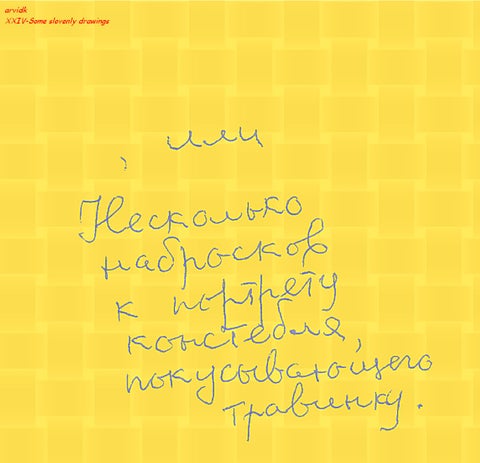 arvidk
XXIV-Some slovenly drawings
, или
Несколько
набросков
к портрету
констебля,
покусывающего
травинку.